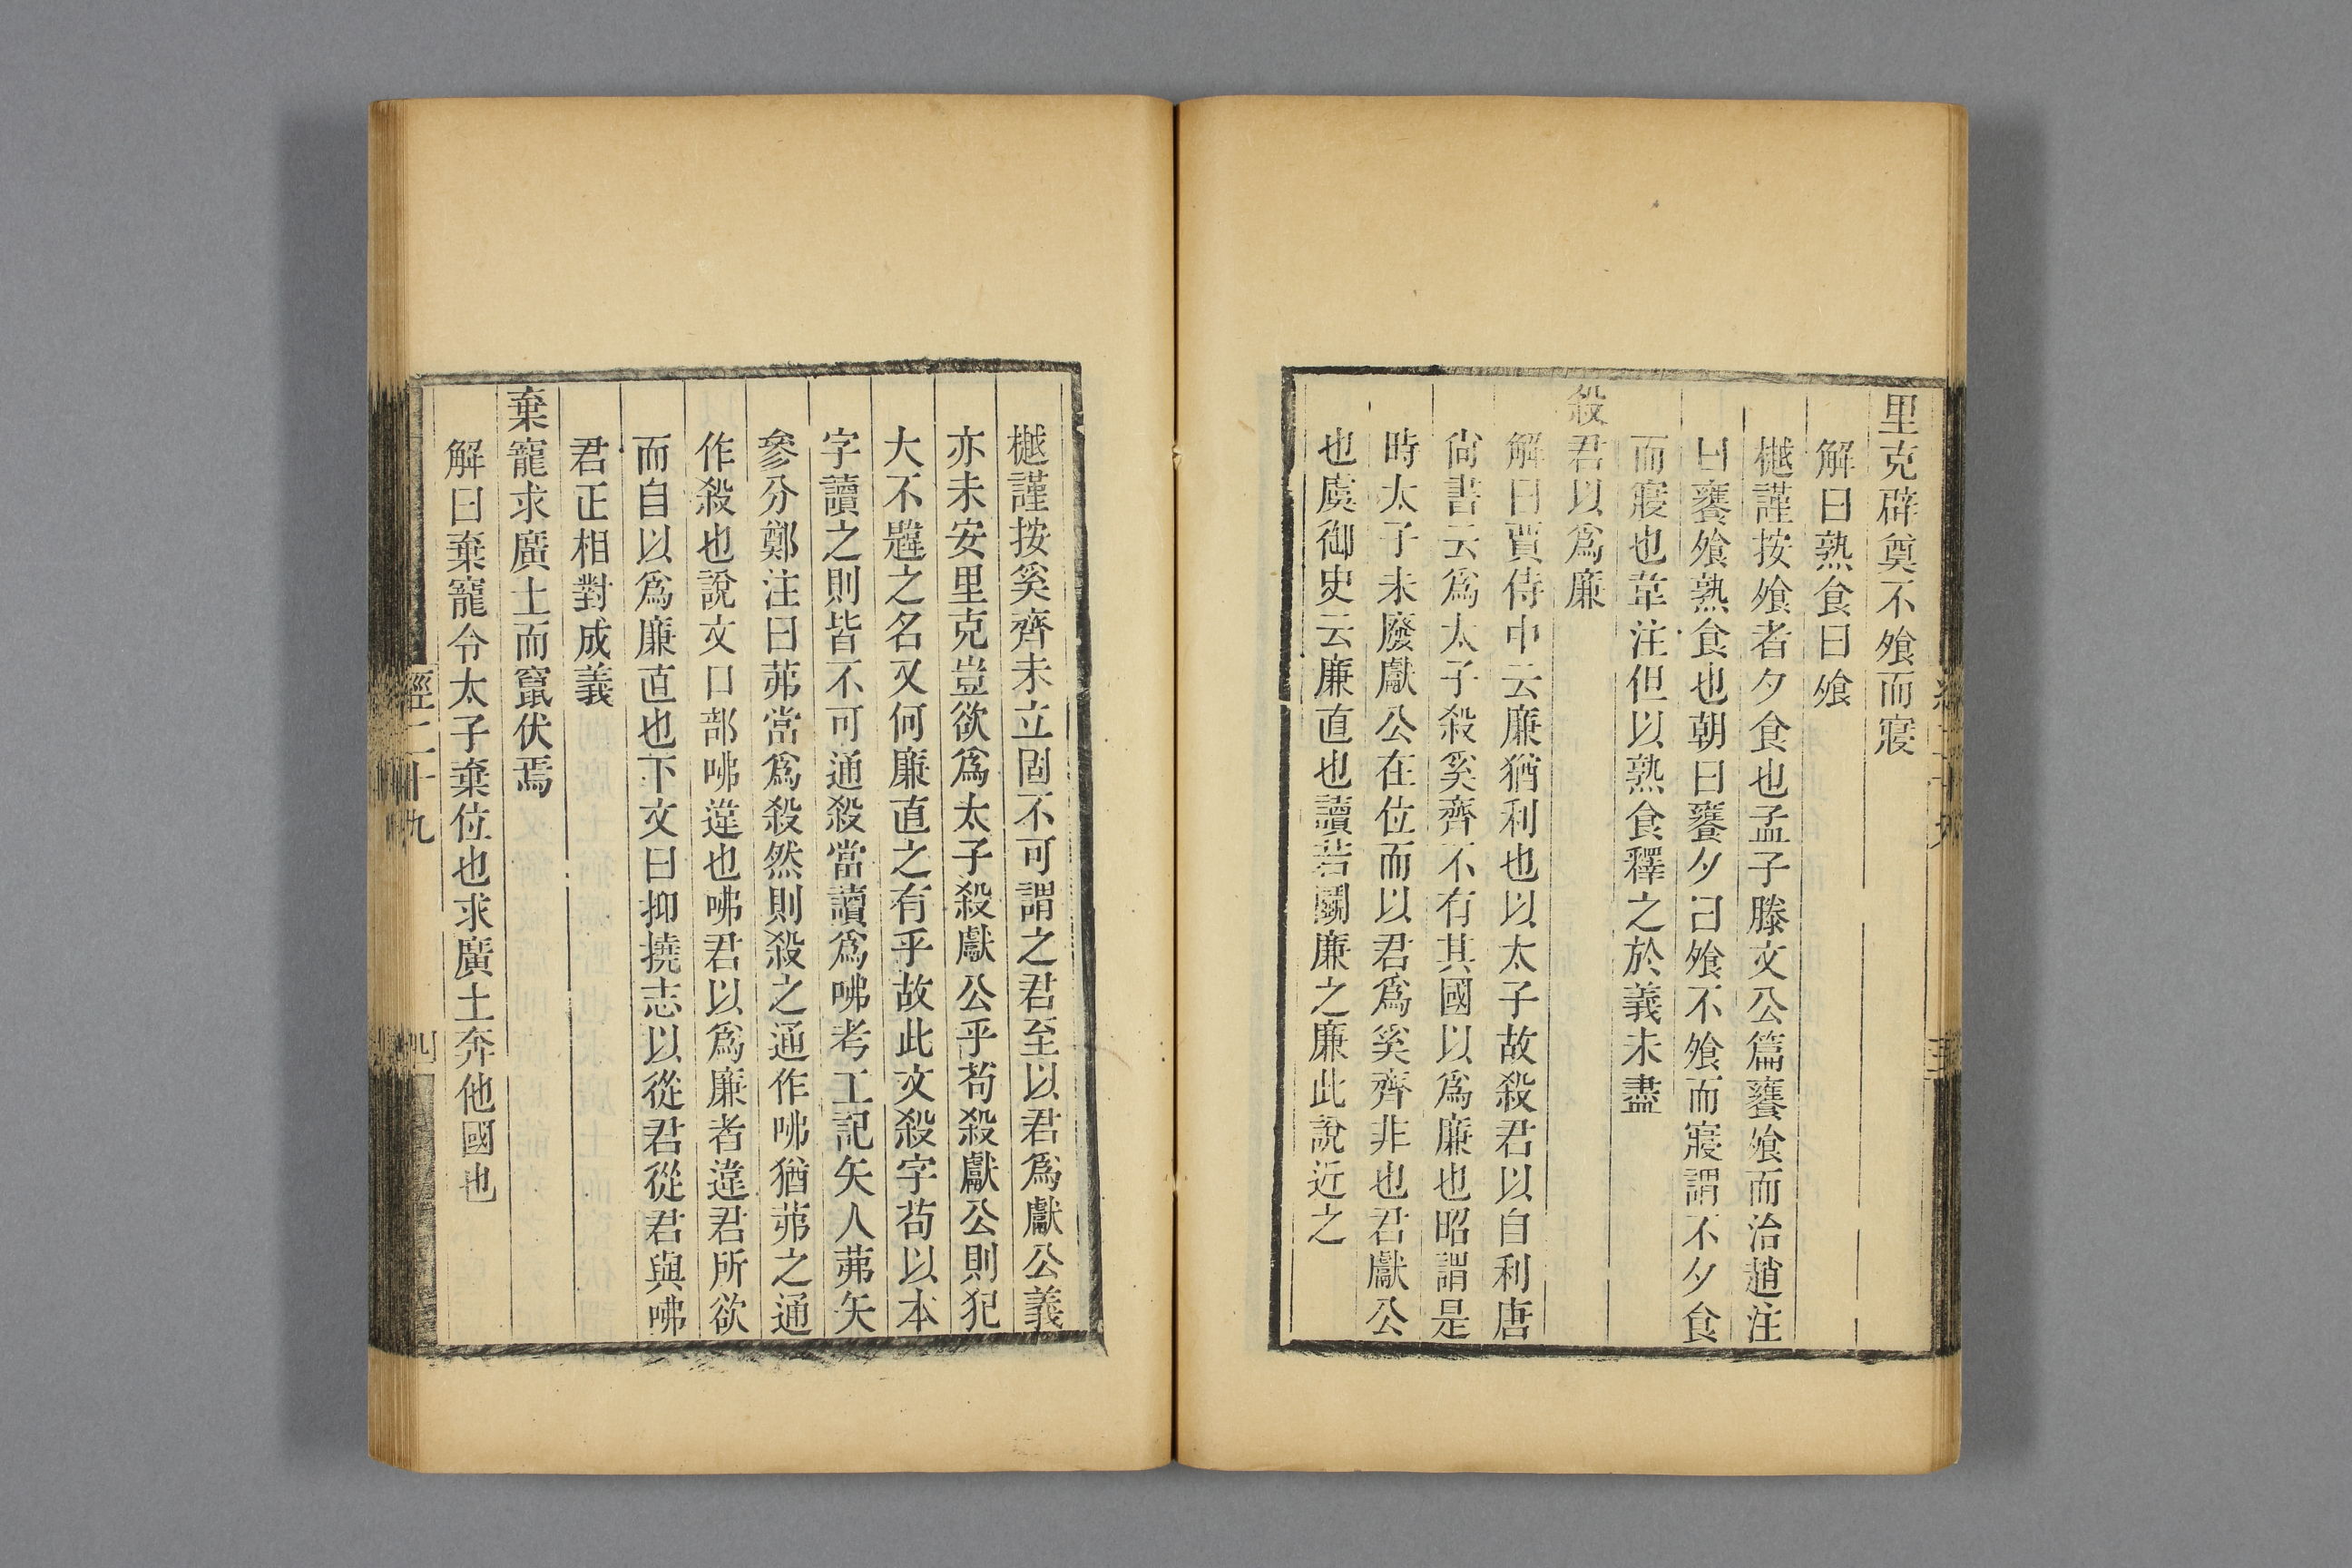 里克辟奠不飧而寢
解曰熟食曰飧
樾謹按飧者夕食也孟子滕文公篇饔飧而治趙注
曰饔飧熟食也朝曰饔夕曰飧不飧而寢謂不夕食
而寢也韋注但以熟食釋之於義未盡
殺君以爲廉
解曰賈侍中云廉猶利也以太子故殺君以自利唐
尚書云爲太子殺奚齊不有其國以爲廉也昭謂是
時太子未廢獻公在位而以君爲奚齊非也君獻公
也虞御史云廉直也讀若鬭廉之廉此說近之
樾謹按奚齊未立固不可謂之君至以君爲獻公義
亦未安里克豈欲爲太子殺獻公乎苟殺獻公則犯
大不韙之名又何廉直之有乎故此文殺字苟以本
字讀之則皆不可通殺當讀爲咈考工記矢人茀矢
參分鄭注曰茀當爲殺然則殺之通作咈猶茀之通
作殺也說文口部咈違也咈君以爲廉者違君所欲
而自以爲廉直也下文曰抑撓志以從君從君與咈
君正相對成義
棄寵求廣土而竄伏焉
解曰棄寵令太子棄位也求廣土奔他國也
經二十九